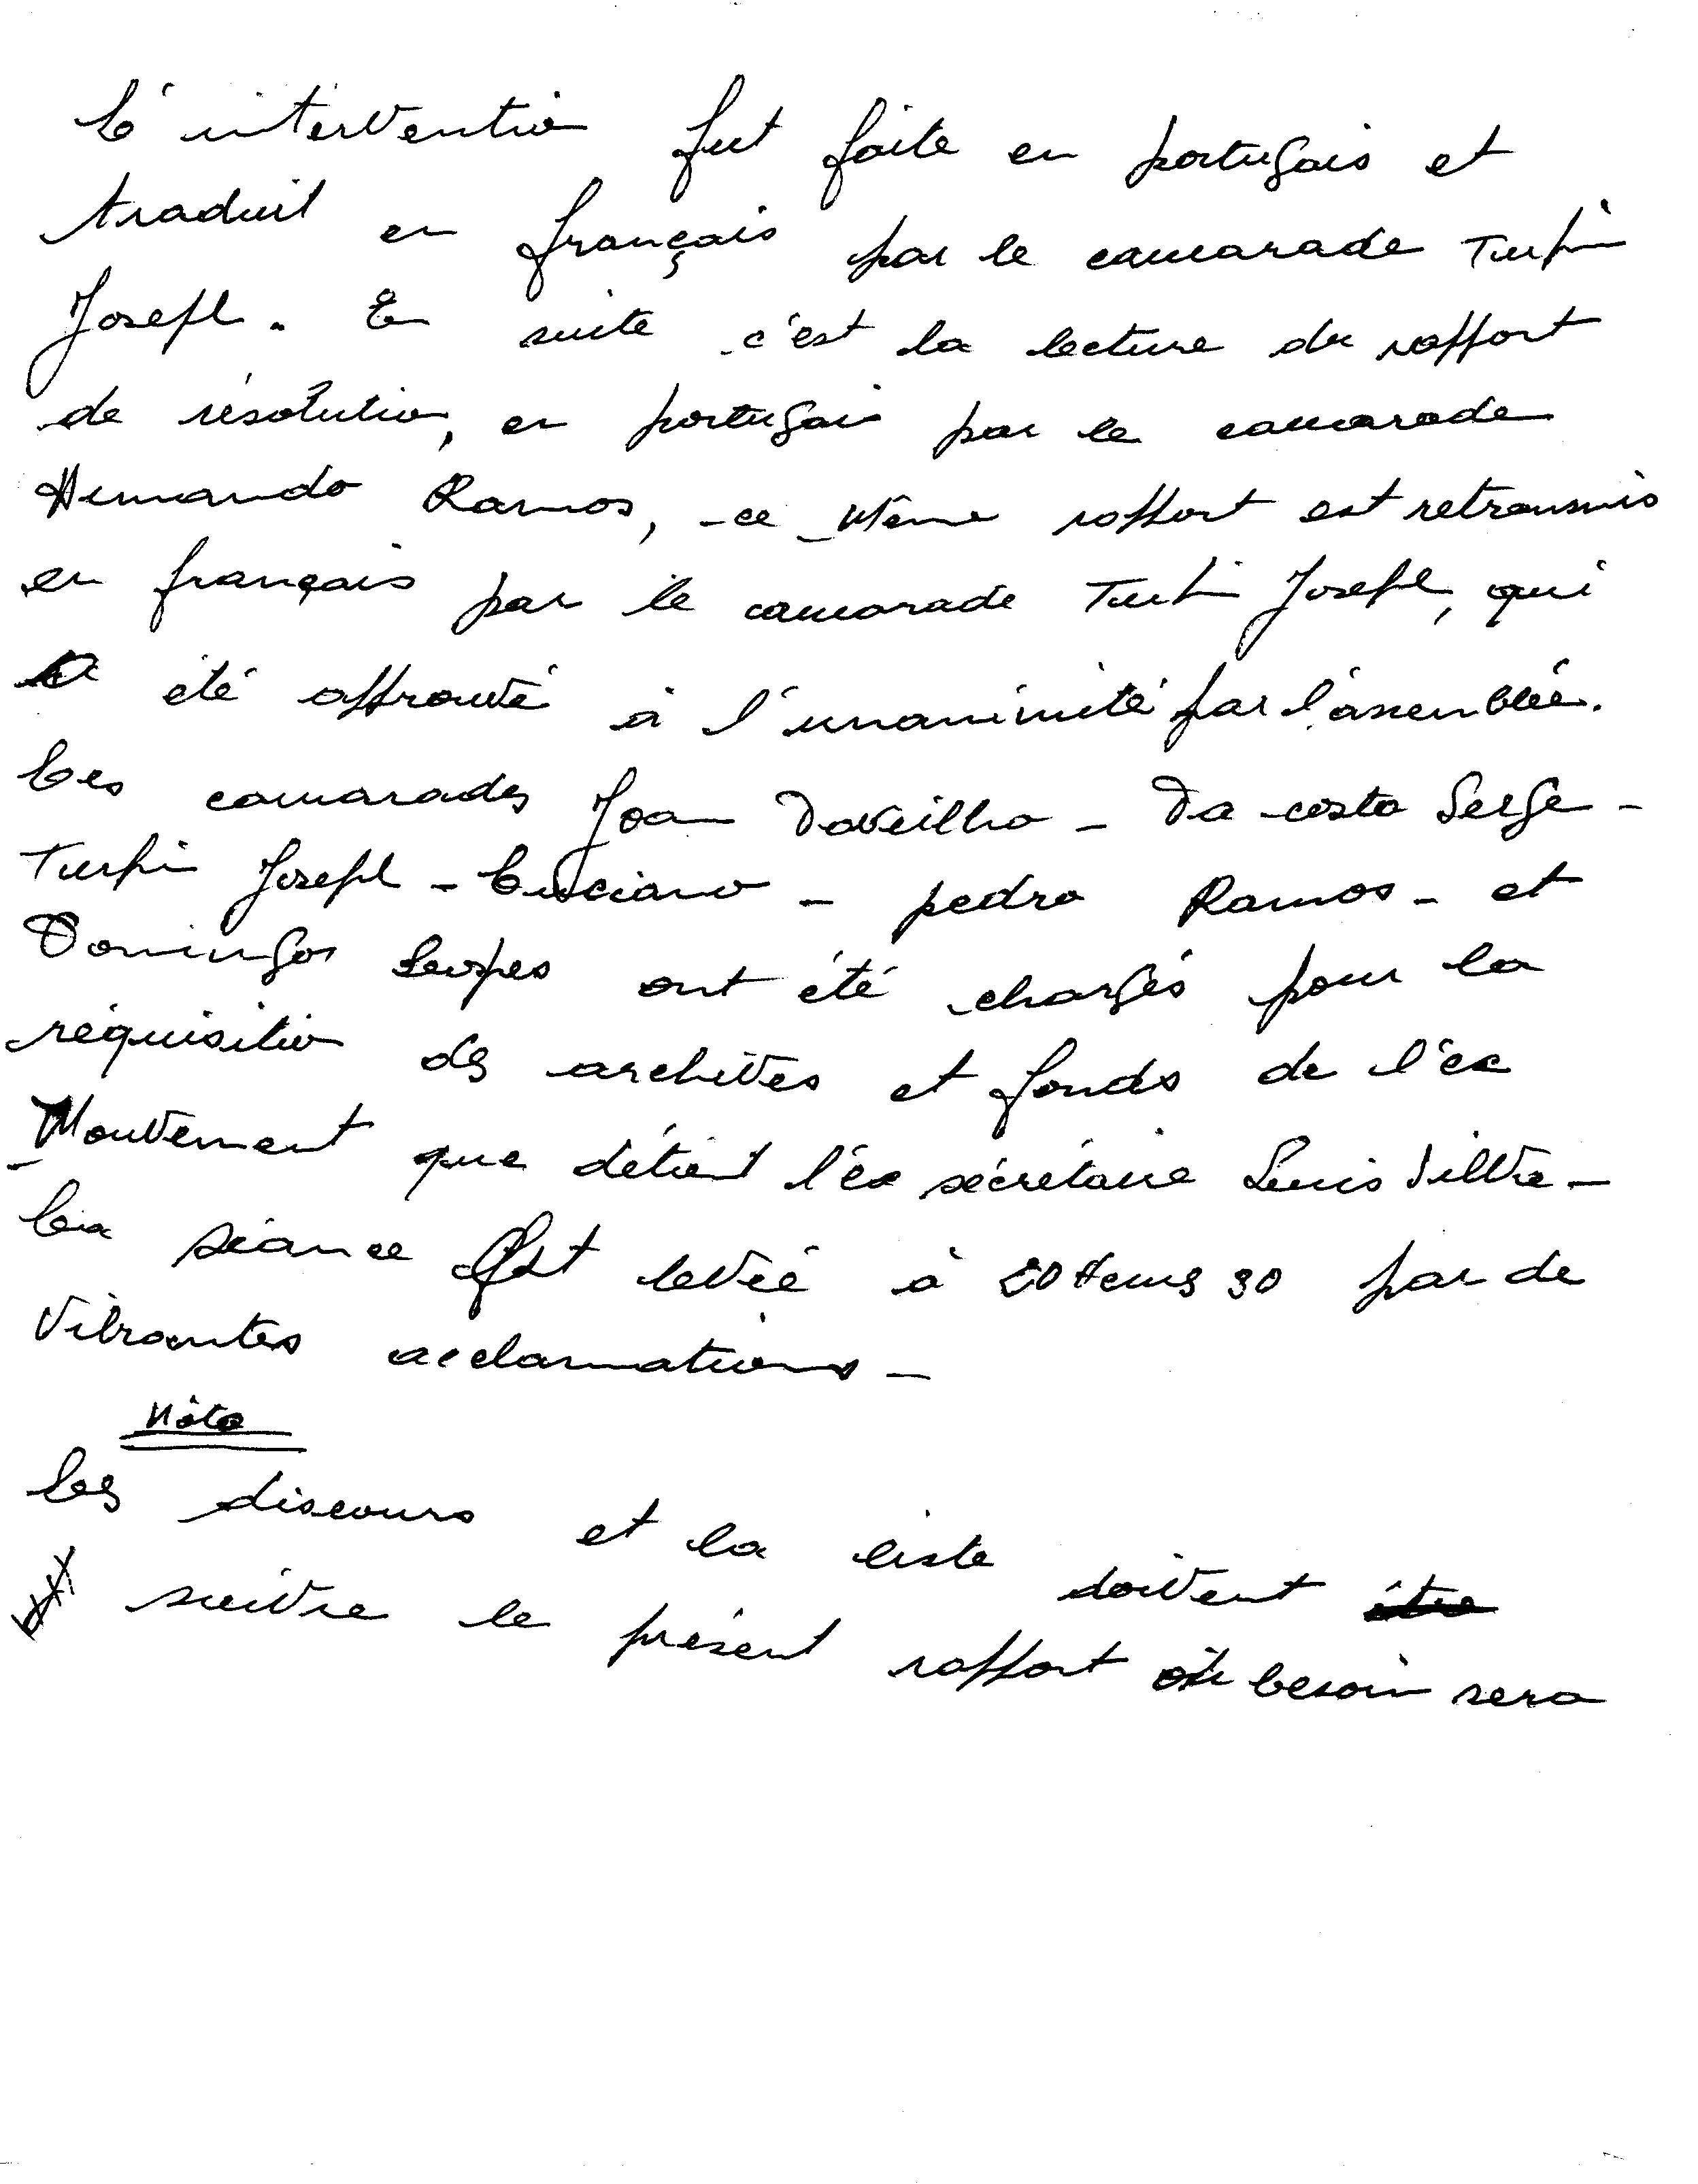 L'intervention fut faite en portugais et
traduit en français par le camarade Turpin
Joseph. En suite c'est la lecture du rapport
de résolution, en portugais par le camarade
Hernando Ramos, ce même rapport est retransmis
en français par le camarade Turpin Joseph, qui
a été approuvé à l'unanimité par l'assemblée.
Les camarades Joan Daveilho - Da costa Serge -
Turpin Joseph - Luciano - pedro Ramos - et
Domingos Lopes ont été chargés pour la
réquisition des archives et fonds de l'ex
Mouvement que détient l'ex secrétaire Luis Silva -
La séance est levée à 20 Heures 30 par de
Vibrantes acclamations -
Nota
Les discours et la liste doivent
suivre le présent rapport où besoin sera